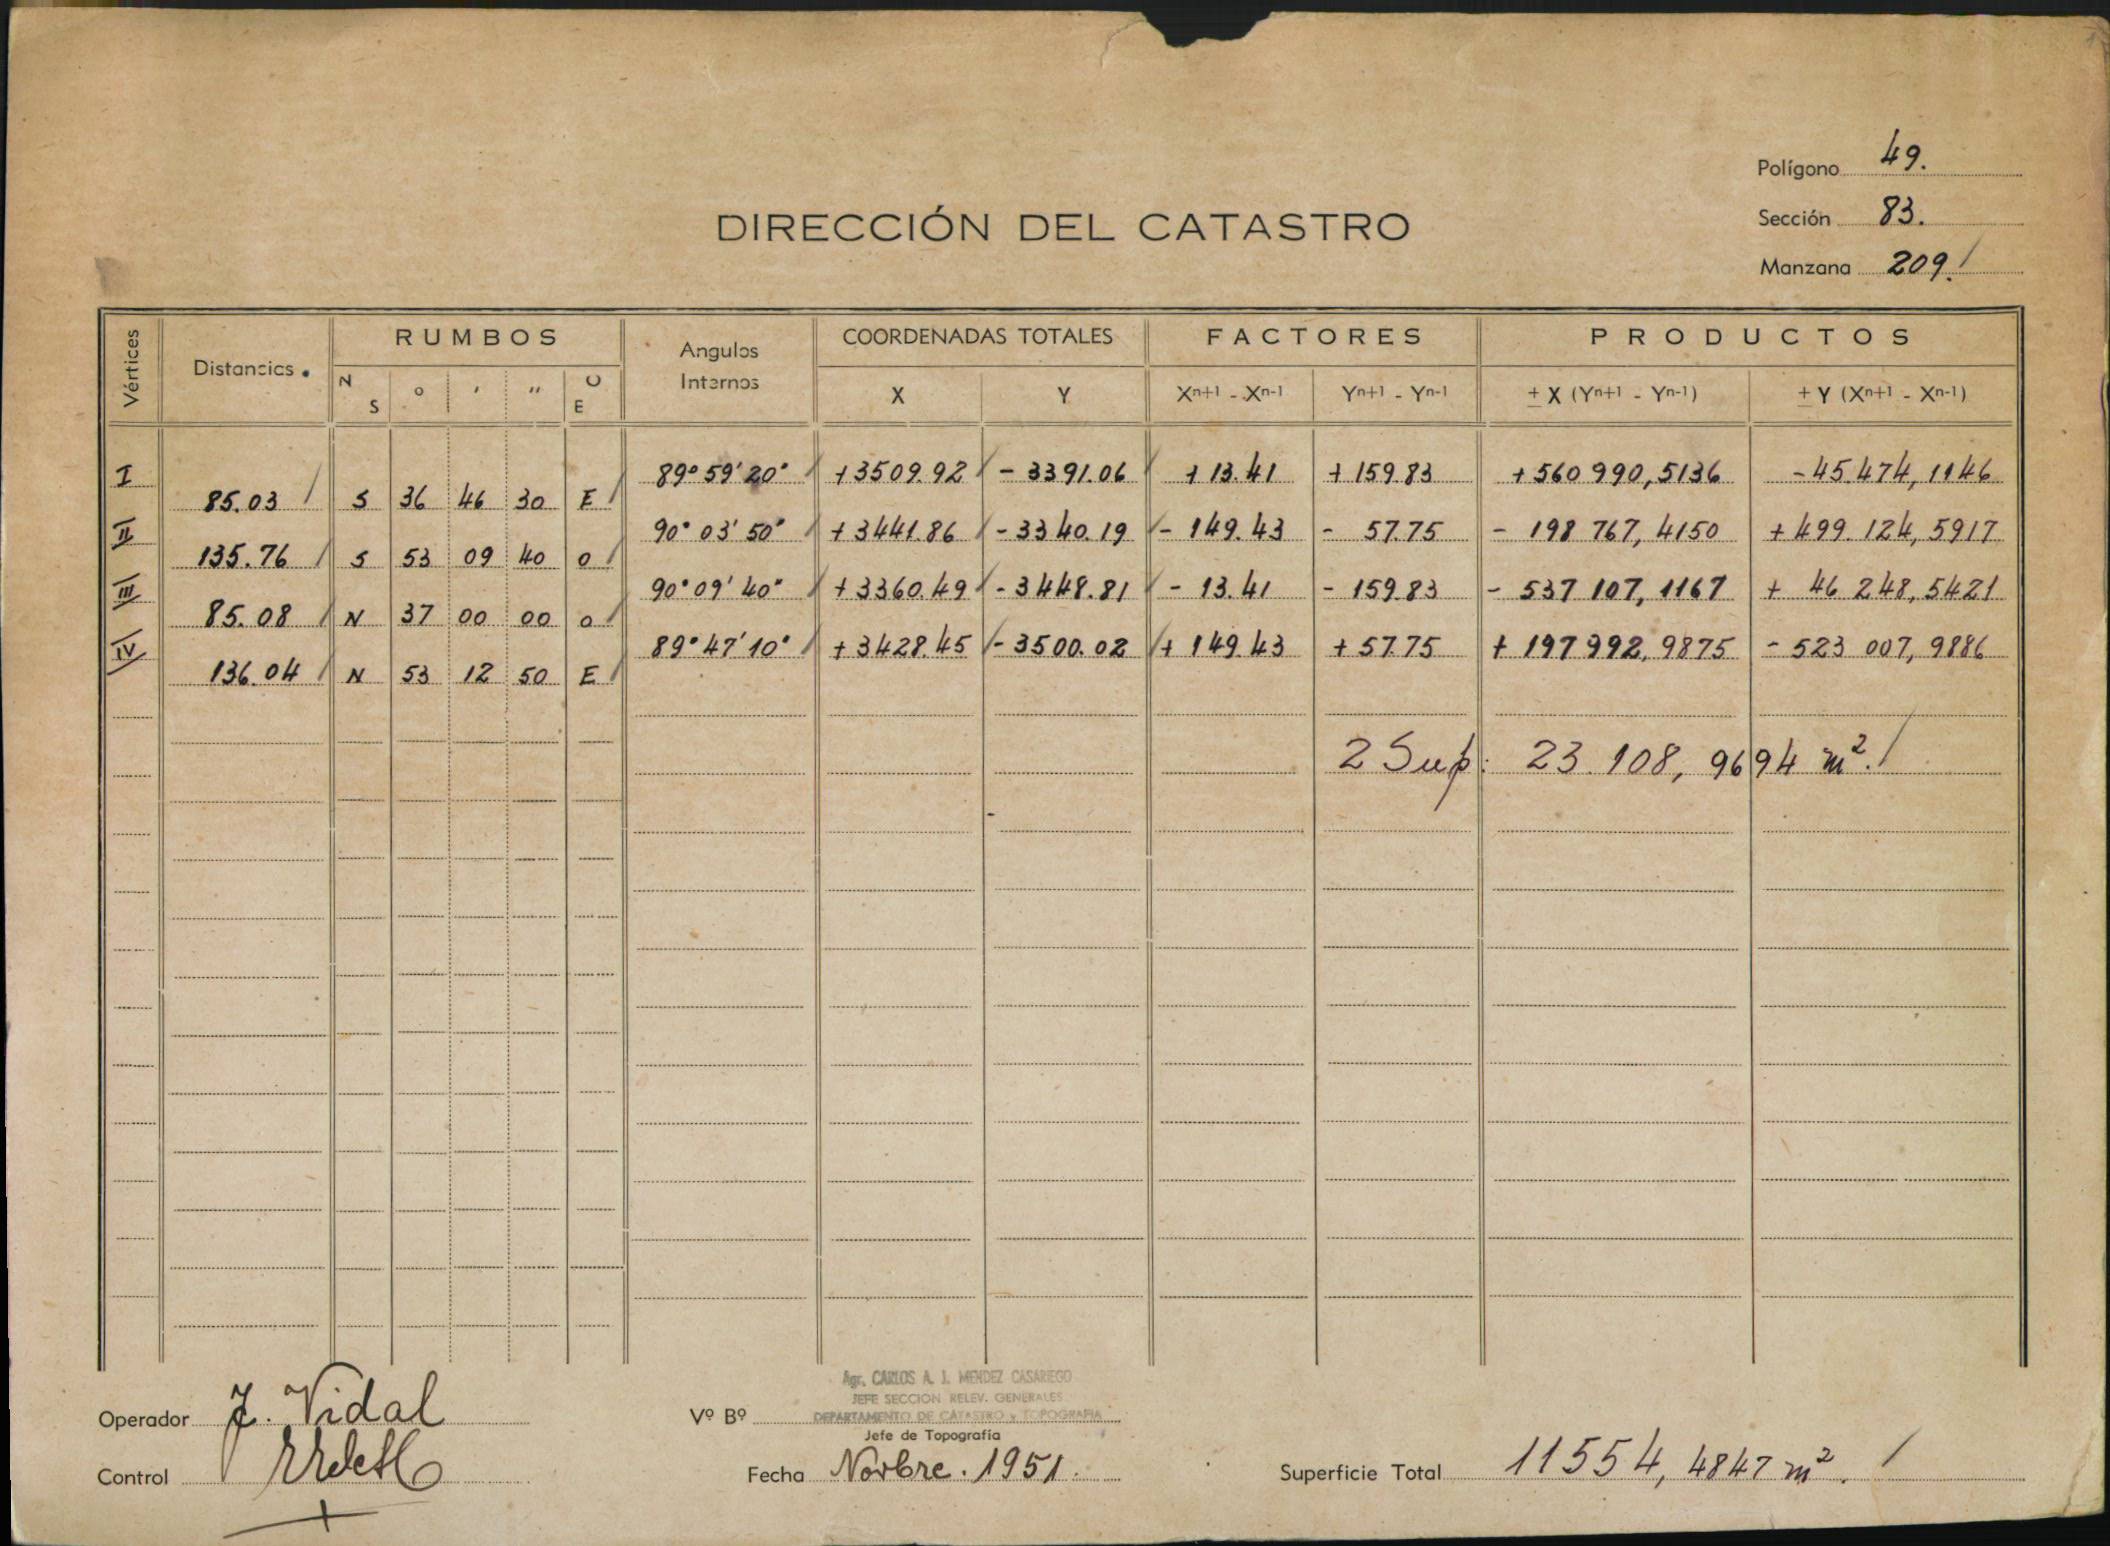 Polígono 49.
Sección 83.
Manzana 209.
DIRECCIÓN DEL CATASTRO
Vértices Distancias RUMBOS Angulos Internos COORDENADAS TOTALES FACTORES PRODUCTOS
N S ° ' " O E X Y Xn+1 - Xn-1 Yn+1 - Yn-1 ± X (Yn+1 - Yn-1) ± Y (Xn+1 - Xn-1)
I 89° 59' 20" +3509.92 - 3391.06 + 13.41 + 159.83 +560 990,5136 -45.474,1146
85.03 S 36 46 30 E
II 90° 03' 50" + 3441.86 - 3340.19 - 149.43 - 57.75 - 198 767,4150 + 499.124,5917
135.76 S 53 09 40 O
III 90° 09' 40" + 3360.49 - 3448.81 - 13.41 - 159.83 - 537 107,1167 + 46 248,5421
85.08 N 37 00 00 O
IV 89° 47' 10" + 3428.45 - 3500.02 + 149.43 + 57.75 + 197 992,9875 - 523 007,9886
136.04 N 53 12 50 E
2 Sup: 23.108,9694 m².
Agr. CARLOS A. J. MENDEZ CASARIEGO
JEFE SECCION RELEV. GENERALES
Operador J. Vidal Vº Bº DEPARTAMENTO DE CATASTRO y TOPOGRAFIA
Jefe de Topografía
Control Fecha Novbre. 1951. Superficie Total 11554,4847 m².